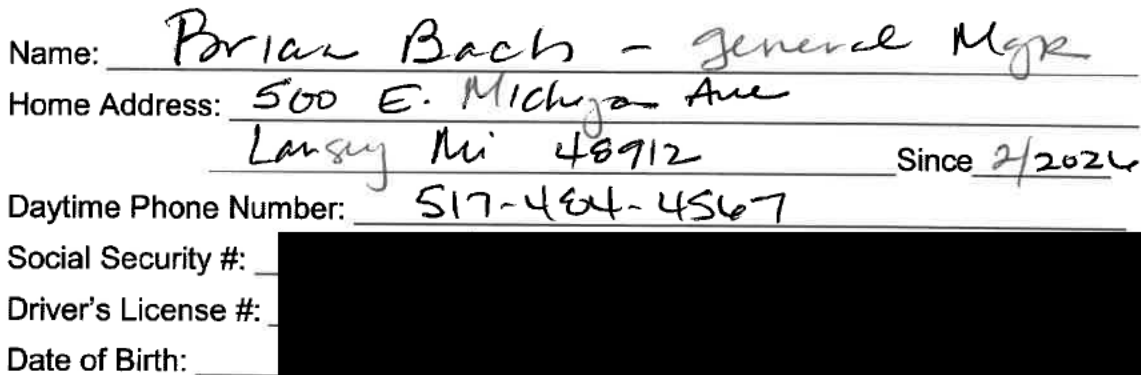 Name: Brian Bach - general Mgr
Home Address: 500 E. Michigan Ave
Lansing Mi 48912 Since 2/2026
Daytime Phone Number: 517-484-4567
Social Security #:
Driver's License #:
Date of Birth: